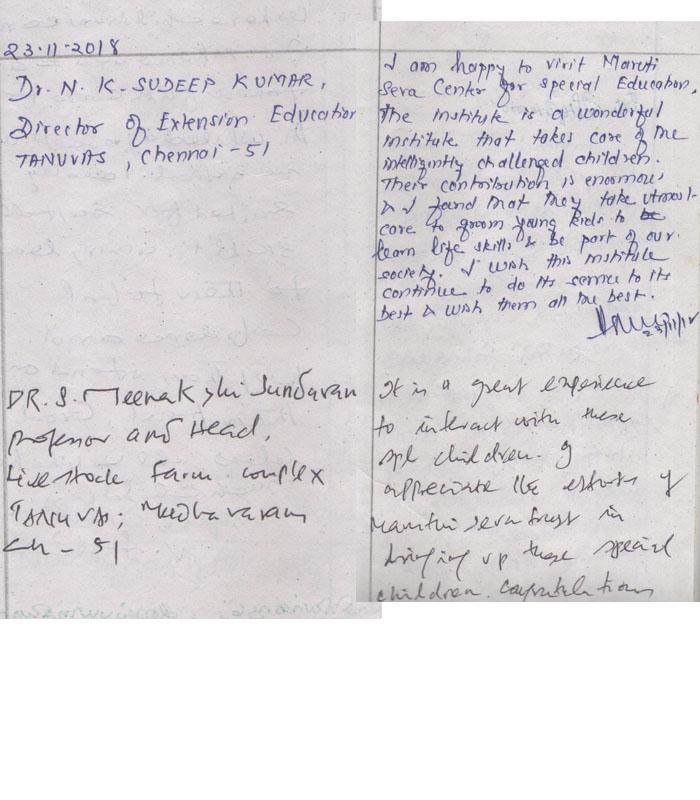 23-11-2018
Dr. N. K. SUDEEP KUMAR,
Director of Extension Education
TANUVAS, Chennai - 51
I am happy to visit Maruti
Seva Center for special Education.
The Institute is a wonderful
institute that takes care of the
intelligently challenged children.
Their contribution is enormous
& I found that they take utmost
care to groom young kids to be
learn life skills & be part of our
society. I wish this institute
continue to do its service to its
best & wish them all the best.
23/11/18
DR. S. Meenakshi Sundaram
Professor and Head,
Livestock Farm Complex
TANUVAS, Madhavaram
Ch - 51
It is a great experience
to interact with these
spl children. I
appreciate the efforts of
Maruthi seva trust in
bringing up these special
children. Congratulations